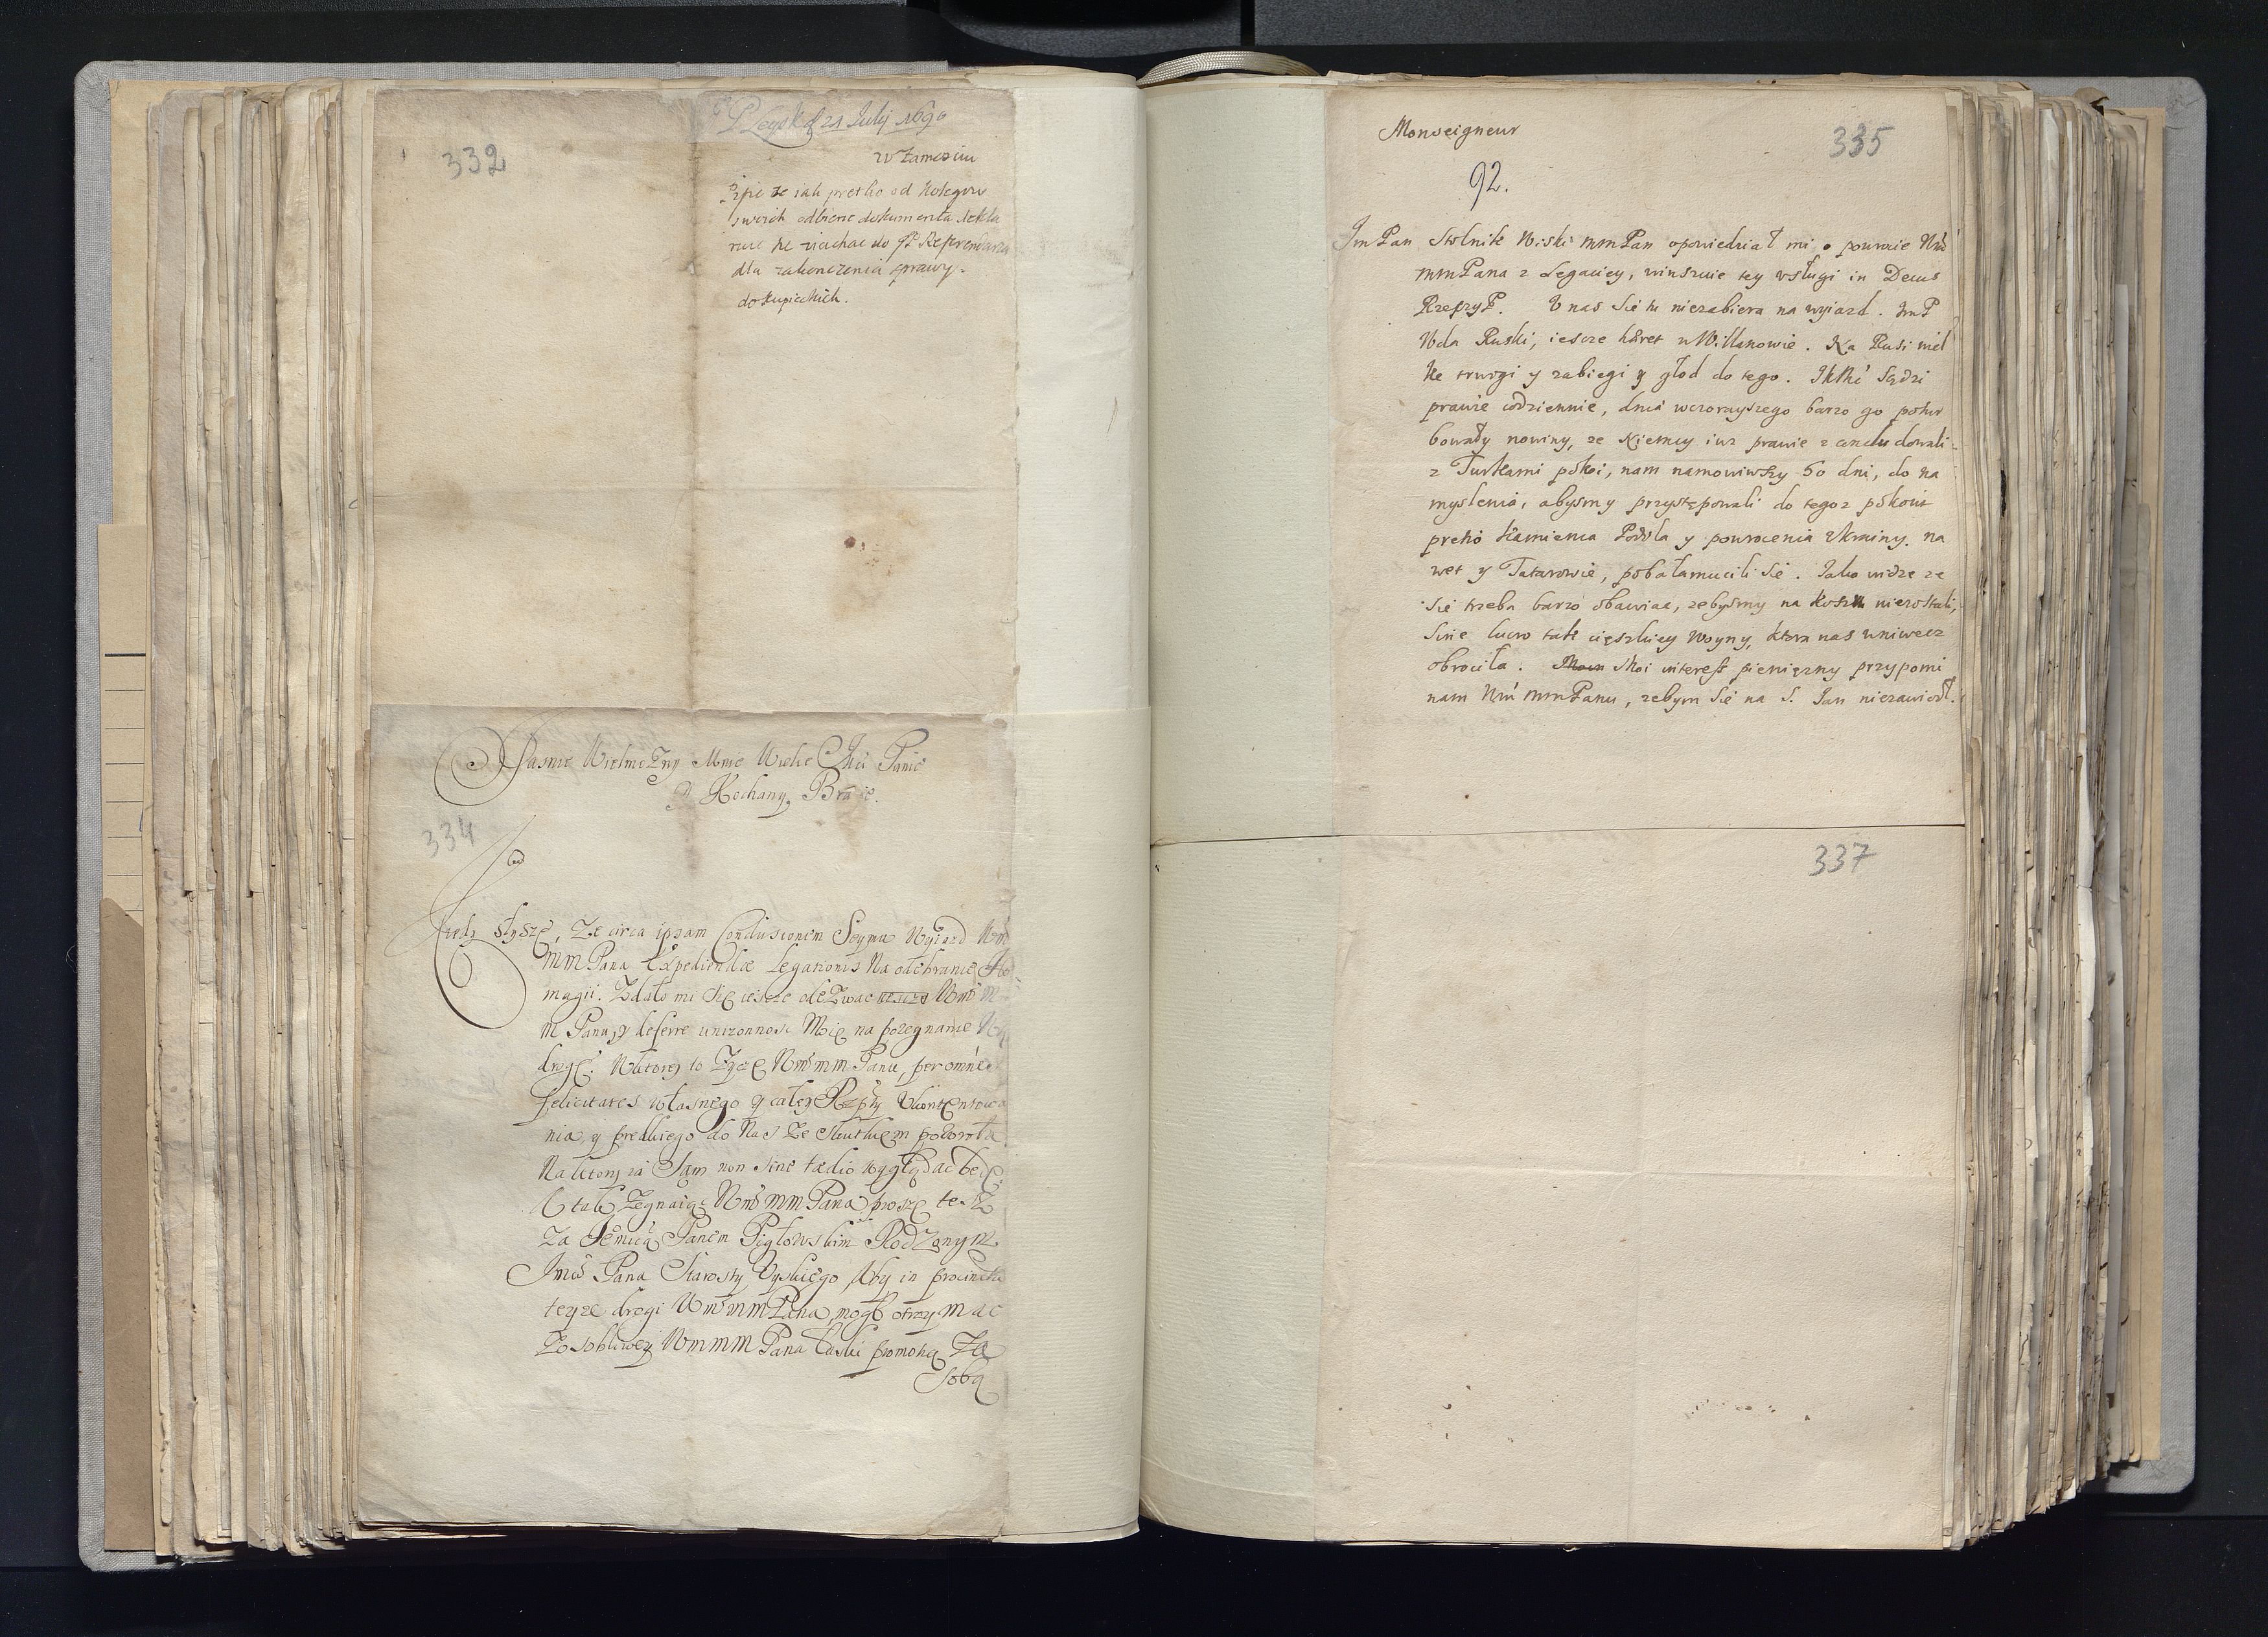 332
21 Julij 1690
w Zamosciu
Pisze ze iak pretko od Kolegow
swoich odbierze dokumenta dekla
ruie ze ziachac do JP Referendarza
dla zakonczenia sprawy
do kupieckich.
Jasnie Wielmozny Mnie Wielce Mci Panie
y Kochany Bracie.
334
słyszę, Ze circa ipsam Conclusionem Seymu Wyiazd Wm
mm Pana Expediendæ Legationis Na odebranie Ho
magii. Zdało mi się ieszcze odezwac Wm m
m Panu, y deferre unizonnosc Moię na pozegnanie
drogę. W ktorey to Zyczę Wm mm Panu, per omnes
felicitates własnego y całey Rzpty Ukontentowa
nia, y prędkiego do Nas Ze skutkiem powrotu
Na ktory ia Sam non sine tædio wyglądac będę.
A tak Zegnaiąc Wm mm Pana proszę tesz
Za Jemcią Panem Pigłowskim Rodzonym
Jmci Pana Starosty Uyskiego, Aby in procinctu
teyze drogi Wm mm Pana, mogł otrzymac
Zosobliwey Wmmm Pana Łaski promotią Za
sobą
Monseigneur
335
92.
Jm Pan Stolnik Wiski mm Pan opowiedział mi o powrocie Wm
mm Pana z Legaciey, winszuie tey usługi in Decus
RzeczyP. U nas sie tu niezabiera na wyiazd. Jm P
Wda Ruski, iescze hæret w Willanowie. Na Rusi wiel
kie trwogi y zabiegi y głod do tego. JKM sądzi
prawie codziennie, dnia wczorayszego barzo go potur
bowały nowiny, ze Niemcy iuz prawie concludowali
z Turkami pokoi, nam namowiwszy 60 dni, do na
myslenia, abysmy przystępowali do tegoz pokoiu
pretio Kamienca Podola y powrocenia Ukrainy. na
wet y Tatarowie, pobałamucili sie. Jako widze ze
sie trzeba barzo obawiac, zebysmy na koszu niezostali,
sine lucro tak cięszkiey Woyny, ktora nas wniwecz
obrociła. Moi interest pienięzny przypomi
nam Wm mm Panu, zebym sie na S. Jan niezawiodł.
337